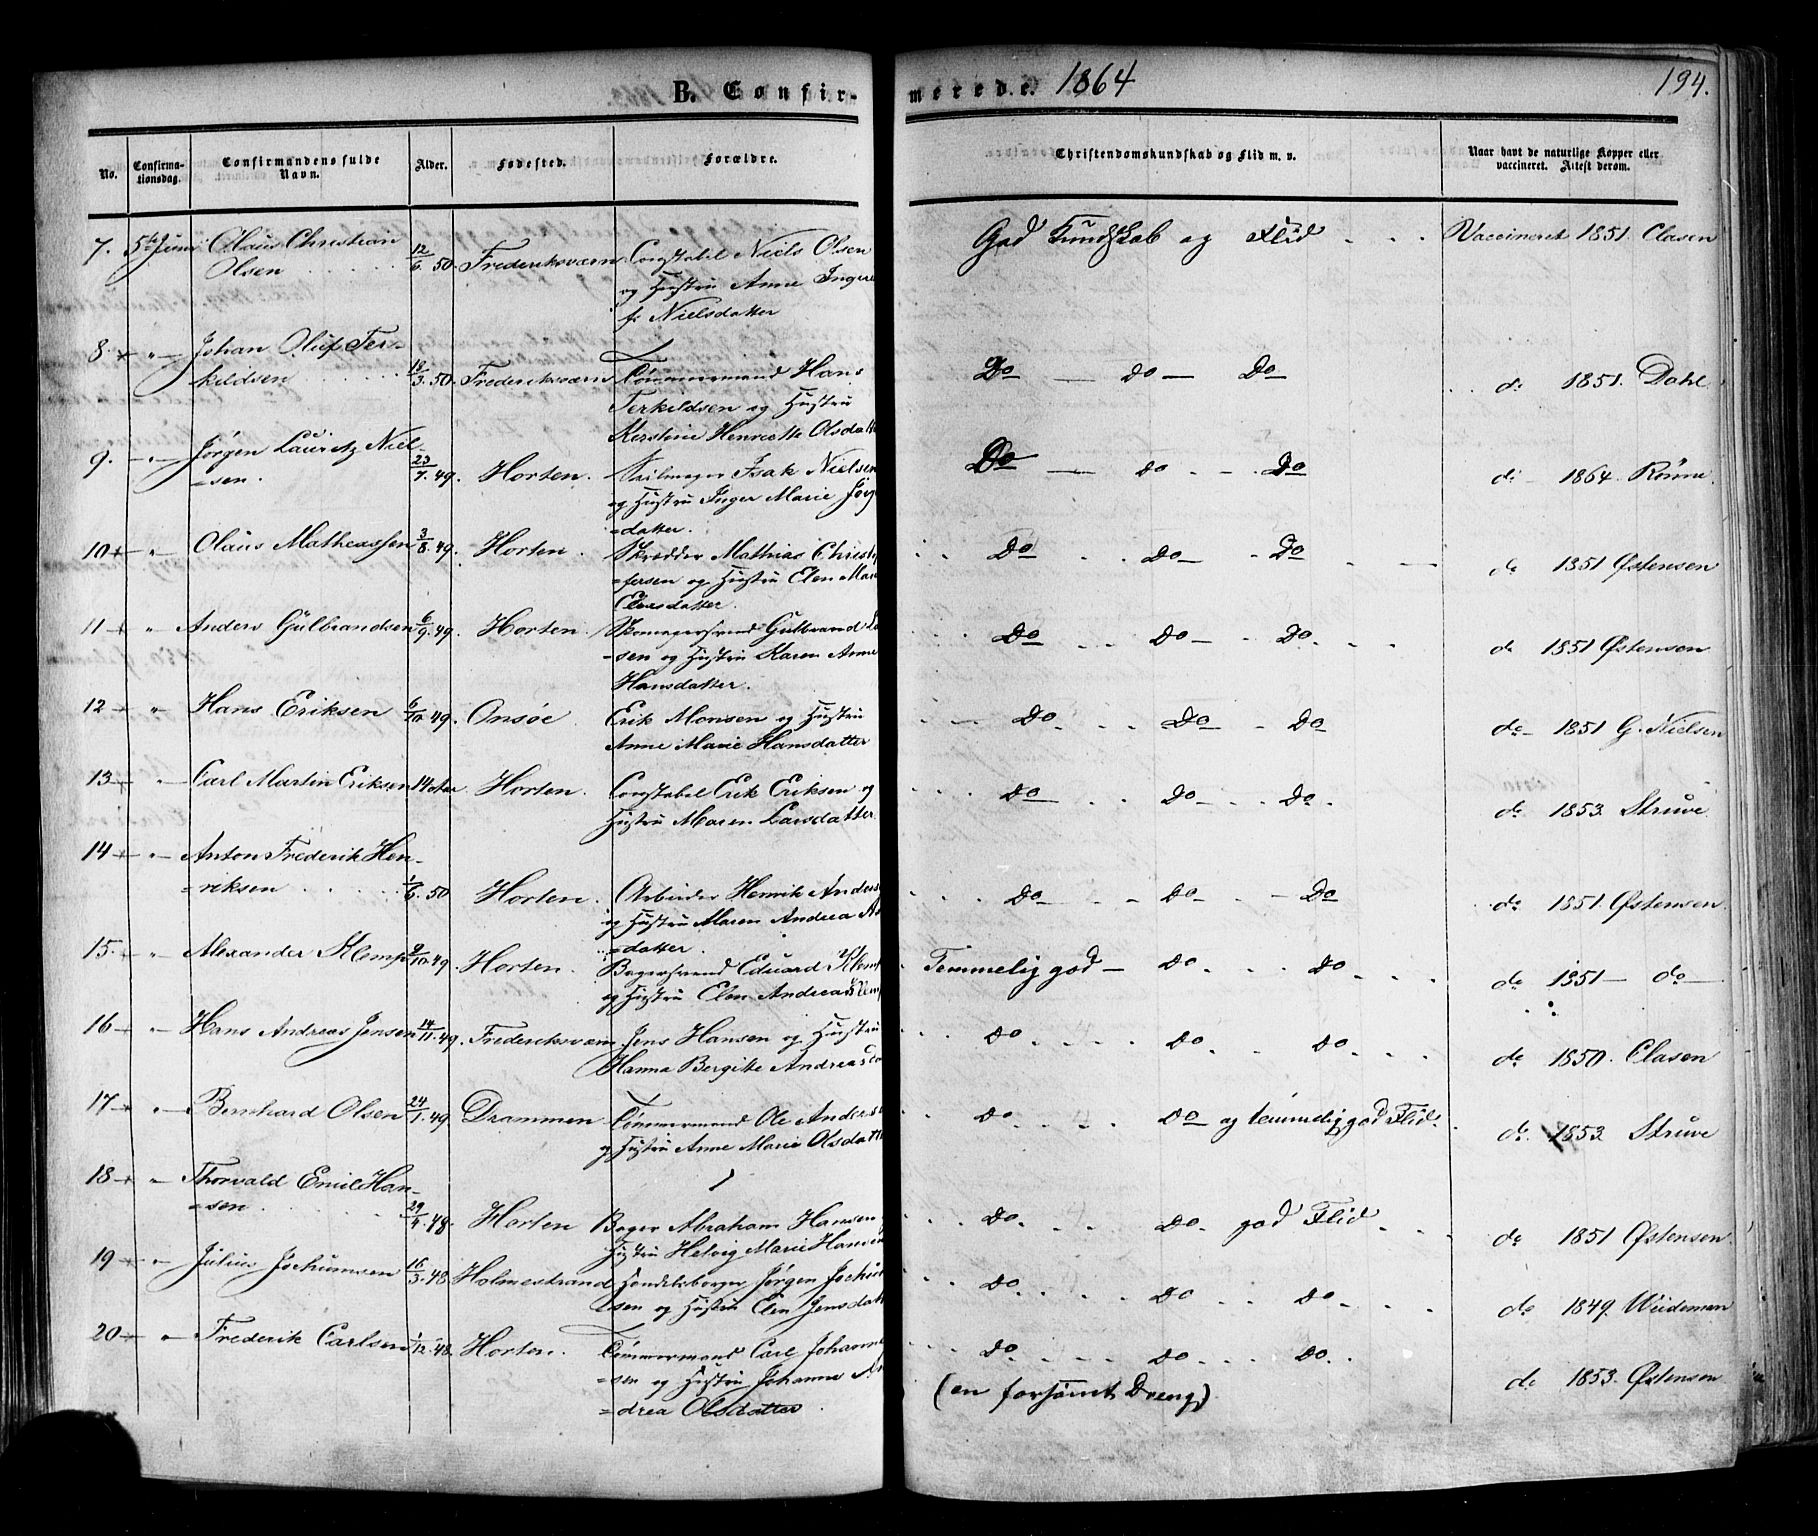 B. Confirmerede. 1864
194.
No.
Confirmationsdag.
Confirmandens fulde Navn.
Alder.
Fødested.
Forældre.
Christendomskundskab og Flid m. v.
Naar havt de naturlige Kopper eller vaccineret. Attest derom.
7. 5te Juni Olaus Christian 12/6. 50. Frederiksværn Constabel Niels Olsen God Kundskab og Flid Vaccineret 1851. Clasen
Olsen og Hustru Anne Inger
f. Nielsdatter
8. " Johan Oluf Ter-
kildsen 18/3. 50. Frederiksværn Tømmermand Hans Do Do Do do 1851. Dahl
Terkildsen og Hustru
Kerstine Henriette Olsdatt
9. " Jørgen Lauritz Niel-
=sen 23/7. 49. Horten. Seilmager Isak Nielsen Do Do Do do 1864. Rønne.
og Hustru Inger Marie Jørg
=datter.
10 " Olaus Matheassen 3/8. 49. Horten. Skrædder Mathias Christ Do Do Do do 1851 Østensen
=fersen og Hustru Elen Mar
datter.
11 " Anders Gulbrandsen 6/9. 49. Horten. Skomagersvend Gulbrand La Do Do Do do 1851 Østensen
=sen og Hustru Karen Anne
Hansdatter.
12 " Hans Eriksen 6/10. 49. Onsøe Erik Monsen og Hustru Do Do Do do 1851 G. Nielsen
Anne Marie Hansdatter
13 " Carl Martin Eriksen 14 Aar Horten. Constabel Erik Eriksen og Do Do Do do 1853. Struve
Hustru Maren Larsdatter.
14 " Anton Frederik Hen-
=riksen 1/6. 50 Horten. Arbeider Henrik Anders Do Do Do do 1851. Østensen
og Hustru Maren Andrea
=datter.
15. " Alexander Klemp 9/10. 49. Horten. Bagersvend Eduard Klemp Temmelig god Do Do do 1851 do
og Hustru Elen Andrea Klemp
16 " Hans Andreas Jensen 14/11. 49. Frederiksværn Jens Hansen og Hustru Do Do Do do 1850. Clasen
Hanna Bergitte Andreas
17 " Bernhard Olsen 24/1. 49. Drammen Tømmermand Ole Anders Do Do og temmelig god Flid. do 1853 Struve
og Hustru Anne Marie Olsdatt
18 " Thorvald Emil Han-
=sen 29/4. 48. Horten Bager Abraham Hansen Do Do god Flid do 1851 Østensen
Hustru Helvig Marie Hansen
19 " Julius Jochumsen 16/3. 48. Holmestrand Handelsborger Jørgen Jochum Do Do Do do 1849. Weideman
=sen og Hustru Elen Jensdatt
20 " Frederik Carlsen 1/12. 48. Horten. Tømmermand Carl Johann Do Do Do do 1853. Østensen
=sen og Hustru Johanne An (en forsømt Dreng)
=drea Olsdatter.